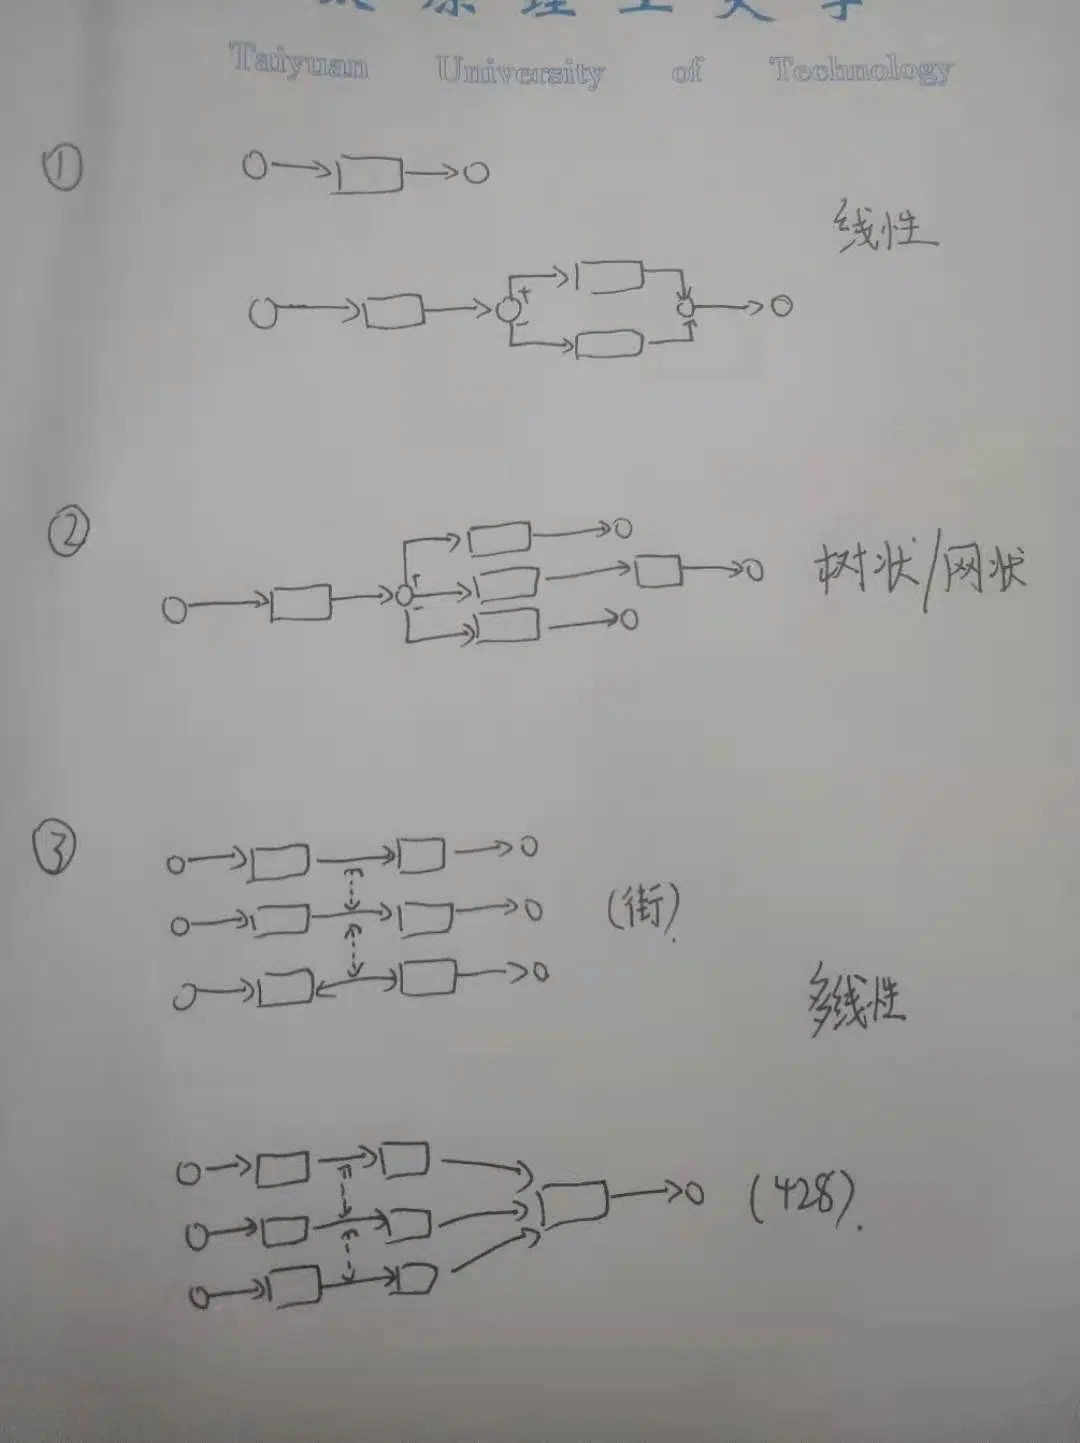 原理工大学
Taiyuan University of Technology
①
线性
+
-
②
树状/网状
+
-
③
(街).
多线性
(428).